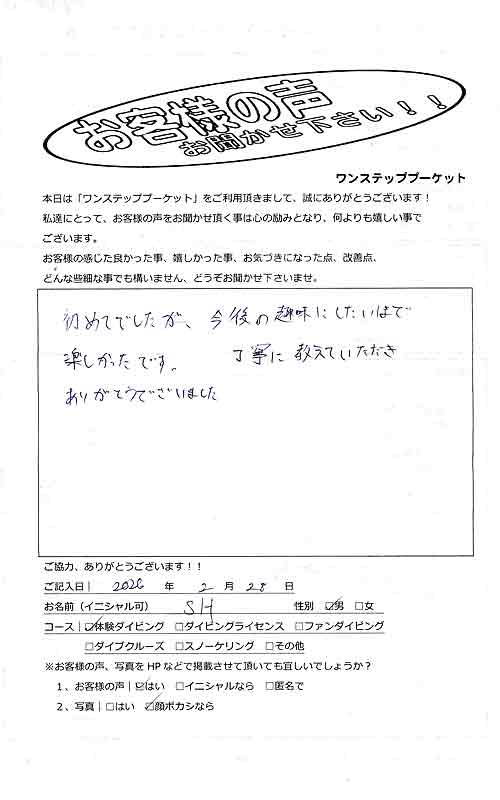 お客様の声
お聞かせ下さい！！
ワンステッププーケット
本日は「ワンステッププーケット」をご利用頂きまして、誠にありがとうございます！
私達にとって、お客様の声をお聞かせ頂く事は心の励みとなり、何よりも嬉しい事で
ございます。
お客様の感じた良かった事、嬉しかった事、お気づきになった点、改善点、
どんな些細な事でも構いません、どうぞお聞かせ下さいませ。
初めてでしたが、今後の趣味にしたいほで
楽しかったです。 丁寧に教えていただき
ありがとうでございました
ご協力、ありがとうございます！！
ご記入日| 2026 年 2 月 28 日
お名前（イニシャル可） SH 性別 ☑男 □女
コース| ☑体験ダイビング □ダイビングライセンス □ファンダイビング
□ダイブクルーズ □スノーケリング □その他
※お客様の声、写真をHPなどで掲載させて頂いても宜しいでしょうか？
１、お客様の声|☑はい □イニシャルなら □匿名で
２、写真|□はい ☑顔ボカシなら